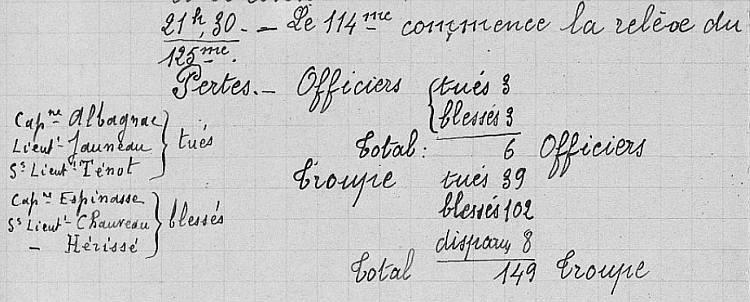 21h,30. — Le 114me commence la relève du
125me.
Pertes. — Officiers { tués 3
blessés 3
Total: 6 Officiers
Troupe tués 39
blessés 102
disparus 8
Total 149 Troupe
Capne Albagnac
Lieut- Jauneau } tués
Ss Lieut- Ténot
Capne Espinasse
Ss Lieut- Chauveau } blessés
— Hérissé